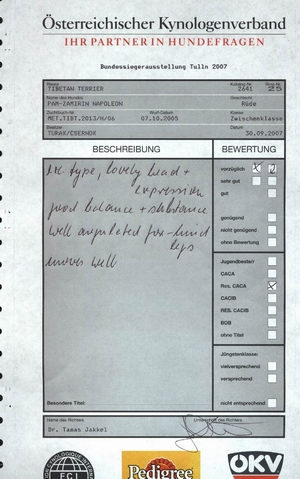 Österreichischer Kynologenverband
IHR PARTNER IN HUNDEFRAGEN
Bundessiegerausstellung Tulln 2007
Rasse Katalog-Nr. Ring-Nr.
TIBETAN TERRIER 2641 25
Name des Hundes Geschlecht
PAM-ZAMIRIN NAPOLEON Rüde
Zuchtbuch-Nr. Wurf-Datum Klasse
MET.TIBT.2013/H/06 07.10.2005 Zwischenklasse
Besitzer Datum
TURAK/CSERNOK 30.09.2007
BESCHREIBUNG BEWERTUNG
ex. type, lovely head +
expression
good balance + substance
well angulated for-hind
legs
moves well
vorzüglich
sehr gut
gut
genügend
nicht genügend
ohne Bewertung
Jugendbester
CACA
Res. CACA
CACIB
RES. CACIB
BOB
ohne Titel
Jüngstenklasse:
vielversprechend
versprechend
Besondere Titel: nicht entsprechend
Name des Richters Unterschrift des Richters
Dr. Tamas Jakkel
FCI
Pedigree
ÖKV